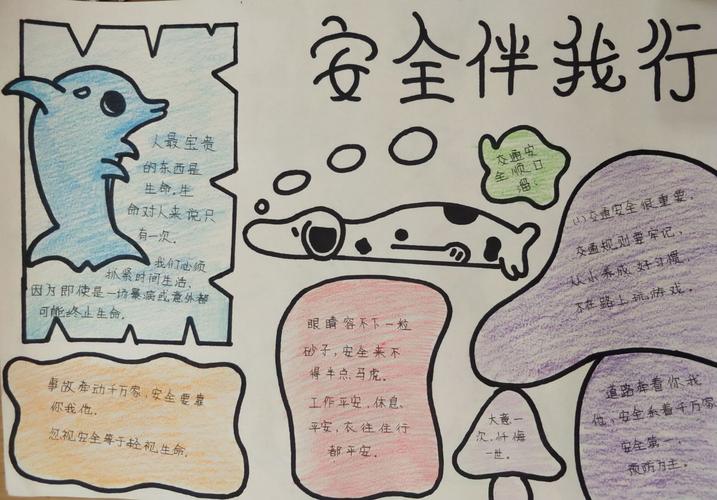 安全伴我行
人最宝贵
的东西是
生命。生
命对人来说只
有一次。
我们必须
抓紧时间生活,
因为即使是一场暴病或意外都
可能终止生命。
交通安
全顺口
溜:
(1)交通安全很重要,
交通规则要牢记,
从小养成好习惯,
不在路上玩游戏。
事故牵动千万家,安全要靠
你我他。
忽视安全等于轻视生命。
眼睛容不下一粒
砂子,安全来不
得半点马虎。
工作平安,休息
平安,衣往住行
都平安。
大意一
次,忏悔
一世。
道路连着你我
他,安全系着千万家
安全第一,
预防为主。